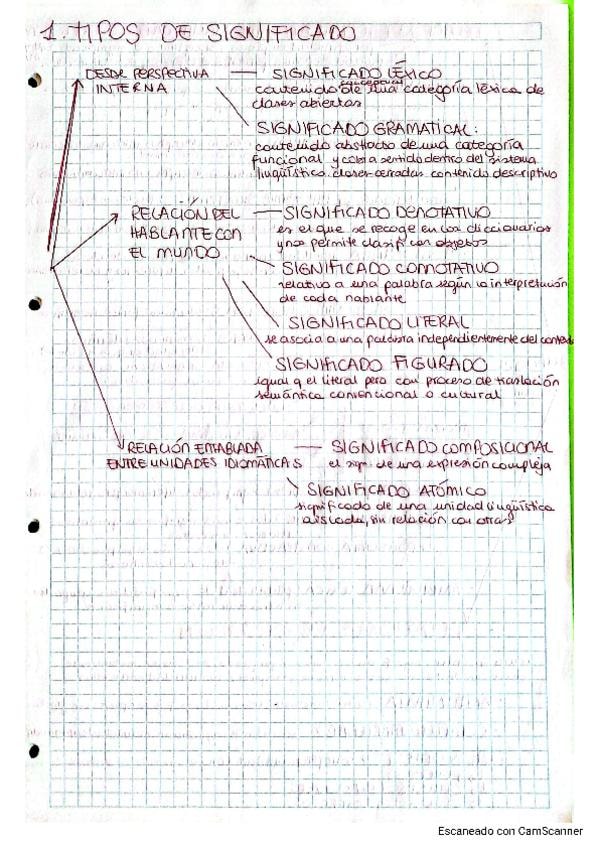 1. TIPOS DE SIGNIFICADO
DESDE PERSPECTIVA INTERNA
SIGNIFICADO LÉXICO
contenido conceptual de una categoría léxica de
clases abiertas
SIGNIFICADO GRAMATICAL:
contenido abstracto de una categoría
funcional y cobra sentido dentro del sistema
lingüístico. clases cerradas. contenido descriptivo
RELACIÓN DEL
HABLANTE CON
EL MUNDO
SIGNIFICADO DENOTATIVO
es el que se recoge en los diccionarios
y nos permite clasif. con objetos
SIGNIFICADO CONNOTATIVO
relativo a una palabra según la interpretación
de cada hablante
SIGNIFICADO LITERAL
se asocia a una palabra independientemente del
SIGNIFICADO FIGURADO
igual q el literal pero con proceso de traslación
semántica convencional o cultural
RELACIÓN ENTABLADA
ENTRE UNIDADES IDIOMÁTICAS
SIGNIFICADO COMPOSICIONAL
el sign. de una expresión compleja
SIGNIFICADO ATÓMICO
significado de una unidad lingüística
aislada, sin relación con otras
Escaneado con CamScanner